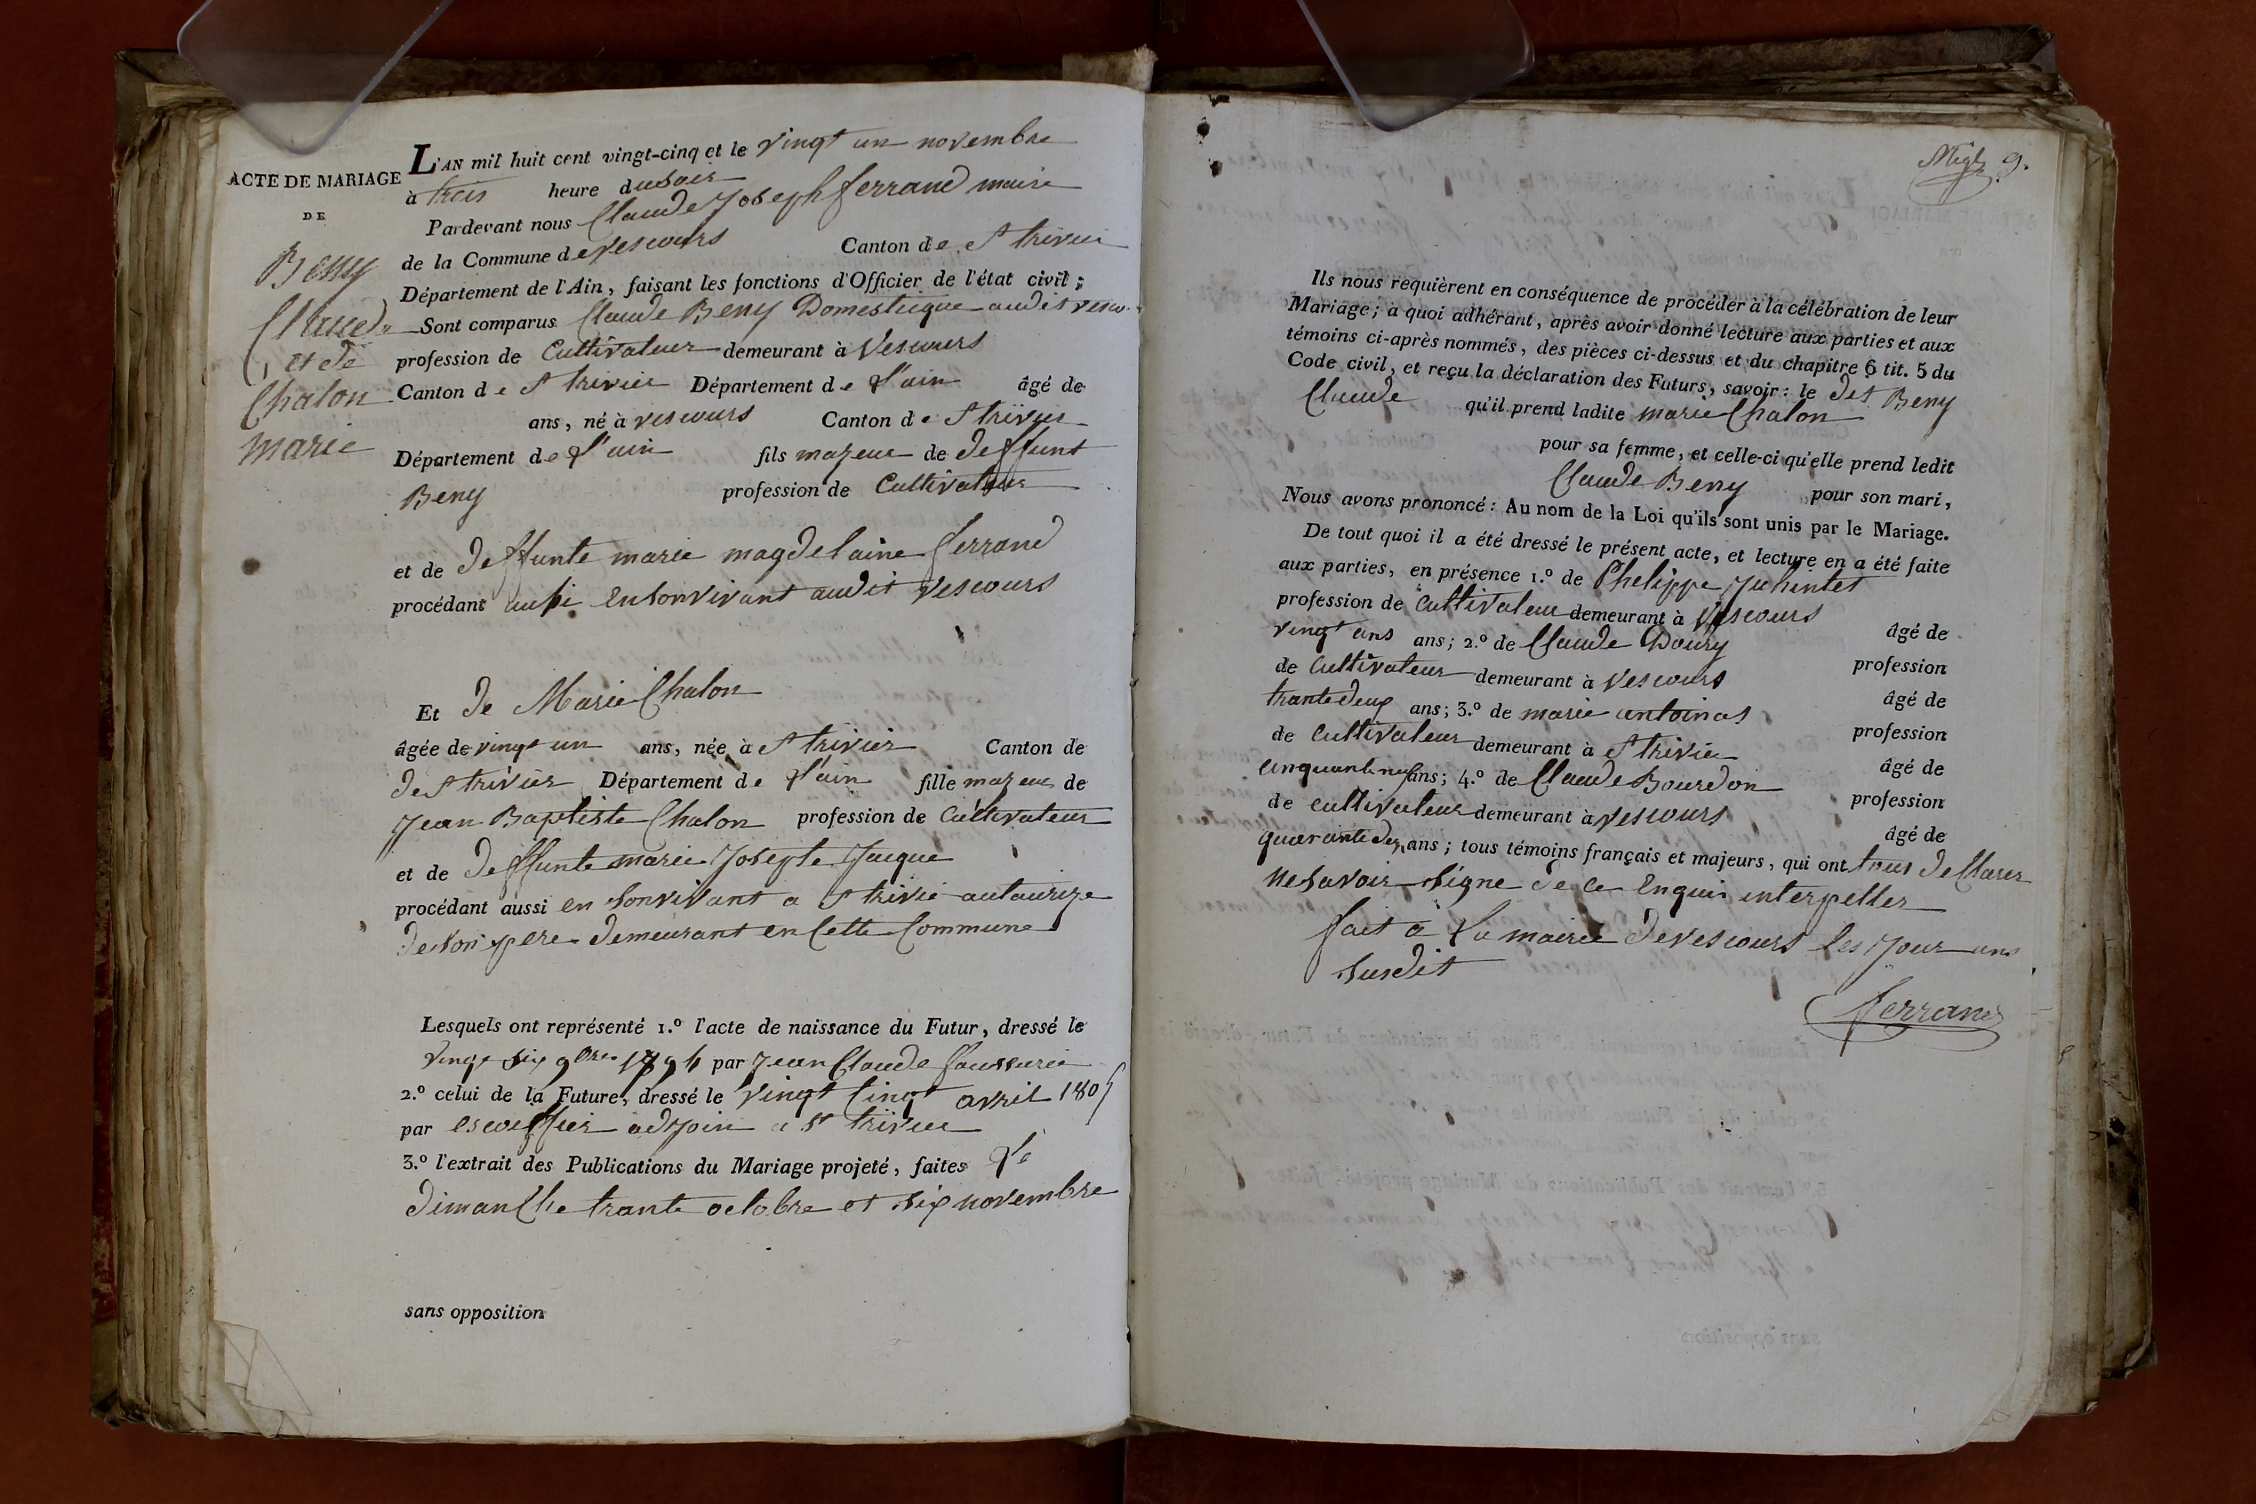 ACTE DE MARIAGE
DE
Beny
Claude
et de
Chalon
marie
L'AN mil huit cent vingt-cinq et le vingt un novembre
à trois heure du soir
Pardevant nous Claude Joseph ferrand maire
de la Commune de vescours Canton de St trivier
Département de l'Ain, faisant les fonctions d'Officier de l'état civil ;
Sont comparus Claude Beny Domestique audit vesco
profession de Cultivateur demeurant à Vescours
Canton de St trivier Département de l'ain âgé de
ans, né à vescours Canton de St trivier
Département de l'ain fils mazeur de deffunt
Beny profession de Cultivateur
et de deffunte marie magdelaine ferrand
procédant aussi en son vivant audit vescours
Et de Marie Chalon
âgée de vingt un ans, née à St trivier Canton de
de St trivier Département de l'ain fille mazeur de
Jean Baptiste Chalon profession de Cultivateur
et de deffunte marie Josepte Jacque
procédant aussi en son vivant a St trivié autaurize
de son pere demeurant en Cette Commune
Lesquels ont représenté 1.º l'acte de naissance du Futur, dressé le
vingt six 9bre par Jean Claude
2.º celui de la Future, dressé le vingt Cinqt avril 180
par escoffier adjoin a St trivier
3.º l'extrait des Publications du Mariage projeté, faites le
dimanche trante octobre et six novembre
sans opposition
9.
Ils nous requièrent en conséquence de procéder à la célébration de leur
Mariage ; à quoi adhérant, après avoir donné lecture aux parties et aux
témoins ci-après nommés, des pièces ci-dessus et du chapitre 6 tit. 5 du
Code civil, et reçu la déclaration des Futurs, savoir : le dit Beny
Claude qu'il prend ladite marie Chalon
pour sa femme, et celle-ci qu'elle prend ledit
Claude Beny pour son mari,
Nous avons prononcé : Au nom de la Loi qu'ils sont unis par le Mariage.
De tout quoi il a été dressé le présent acte, et lecture en a été faite
aux parties, en présence 1.º de Phelippe
profession de cultivateur demeurant à Vescours âgé de
vingt ans ans ; 2.º de Claude Doury profession
de Cultivateur demeurant à Vescours âgé de
trante deux ans ; 3.º de marie antoinas profession
de Cultivateur demeurant à St trivier âgé de
ans ; 4.º de Claude Bourdon profession
de cultivateur demeurant à vescours âgé de
ans ; tous témoins français et majeurs, qui ont tous declarer
ne savoir signe de ce enquis interpeller
fait a la mairie de vescours les jour an
susdit
ferrand